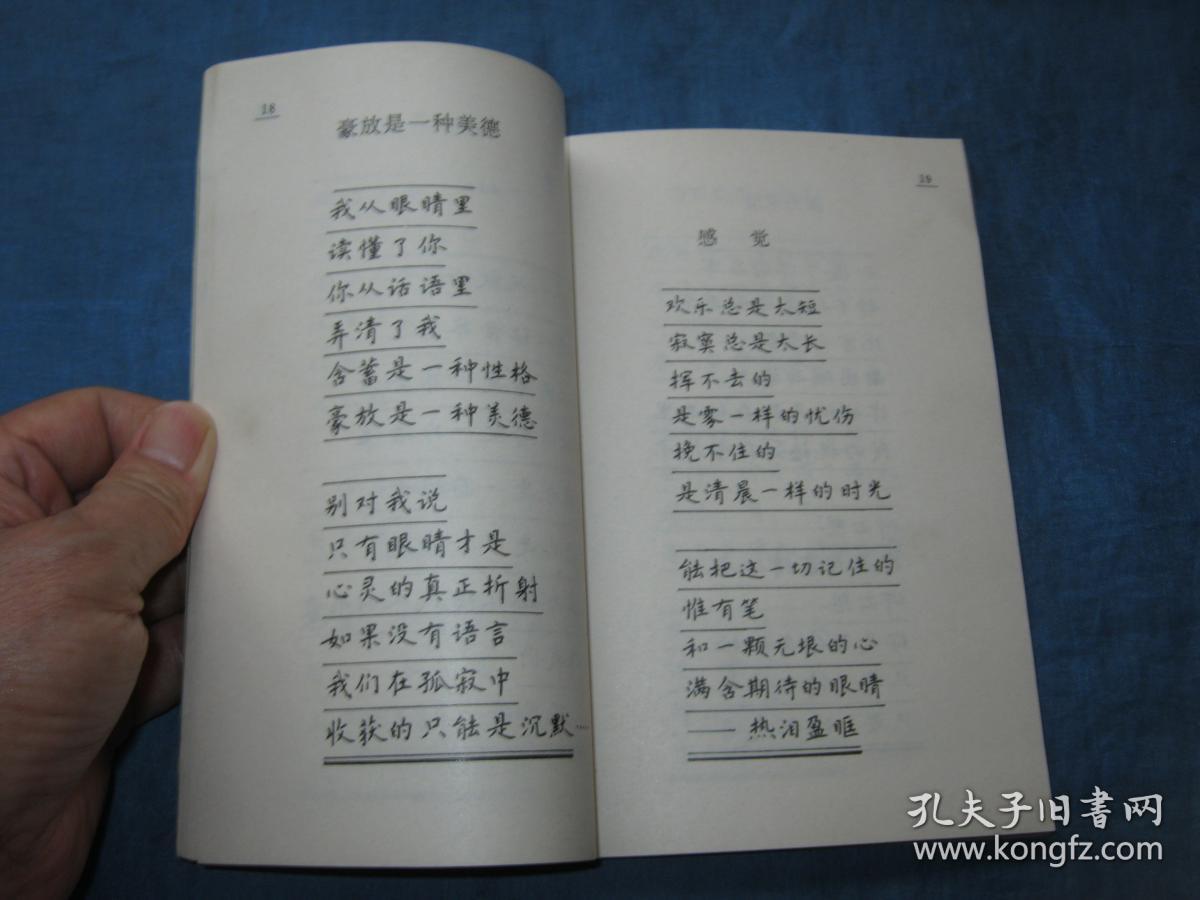 18
豪放是一种美德
我从眼睛里
读懂了你
你从话语里
弄清了我
含蓄是一种性格
豪放是一种美德
别对我说
只有眼睛才是
心灵的真正折射
如果没有语言
我们在孤寂中
收获的只能是沉默……
19
感觉
欢乐总是太短
寂寞总是太长
挥不去的
是雾一样的忧伤
挽不住的
是清晨一样的时光
能把这一切记住的
惟有笔
和一颗无垠的心
满含期待的眼睛
——热泪盈眶
孔夫子旧書网
www.kongfz.com